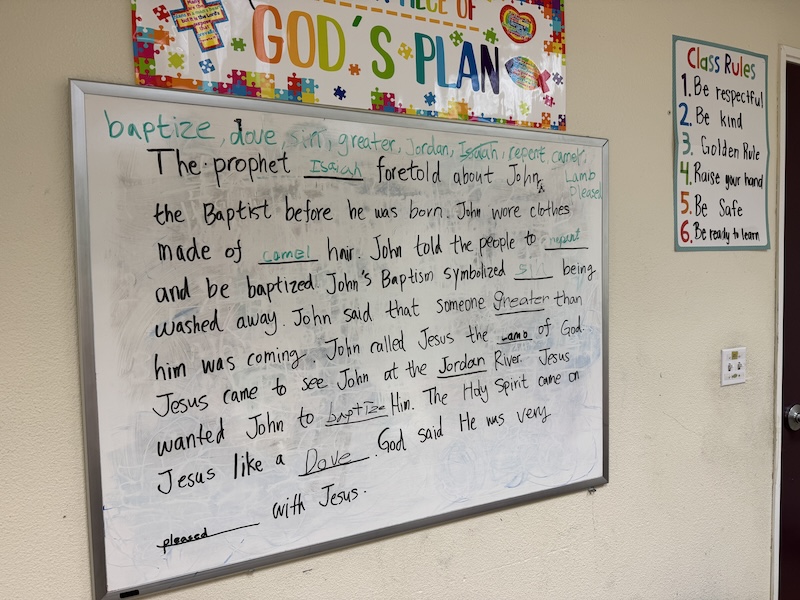 PIECE OF
GOD'S PLAN
Class Rules
1. Be respectful
2. Be kind
3. Golden Rule
4. Raise your hand
5. Be Safe
6. Be ready to learn
baptize, dove, sin, greater, Jordan, Isaiah, repent, camel,
Lamb
Pleased
The prophet Isaiah foretold about John
the Baptist before he was born. John wore clothes
made of camel hair. John told the people to repent
and be baptized. John's Baptism symbolized being
washed away. John said that someone greater than
him was coming. John called Jesus the Lamb of God.
Jesus came to see John at the Jordan River. Jesus
wanted John to baptize Him. The Holy Spirit came on
Jesus like a Dove. God said He was very
pleased with Jesus.